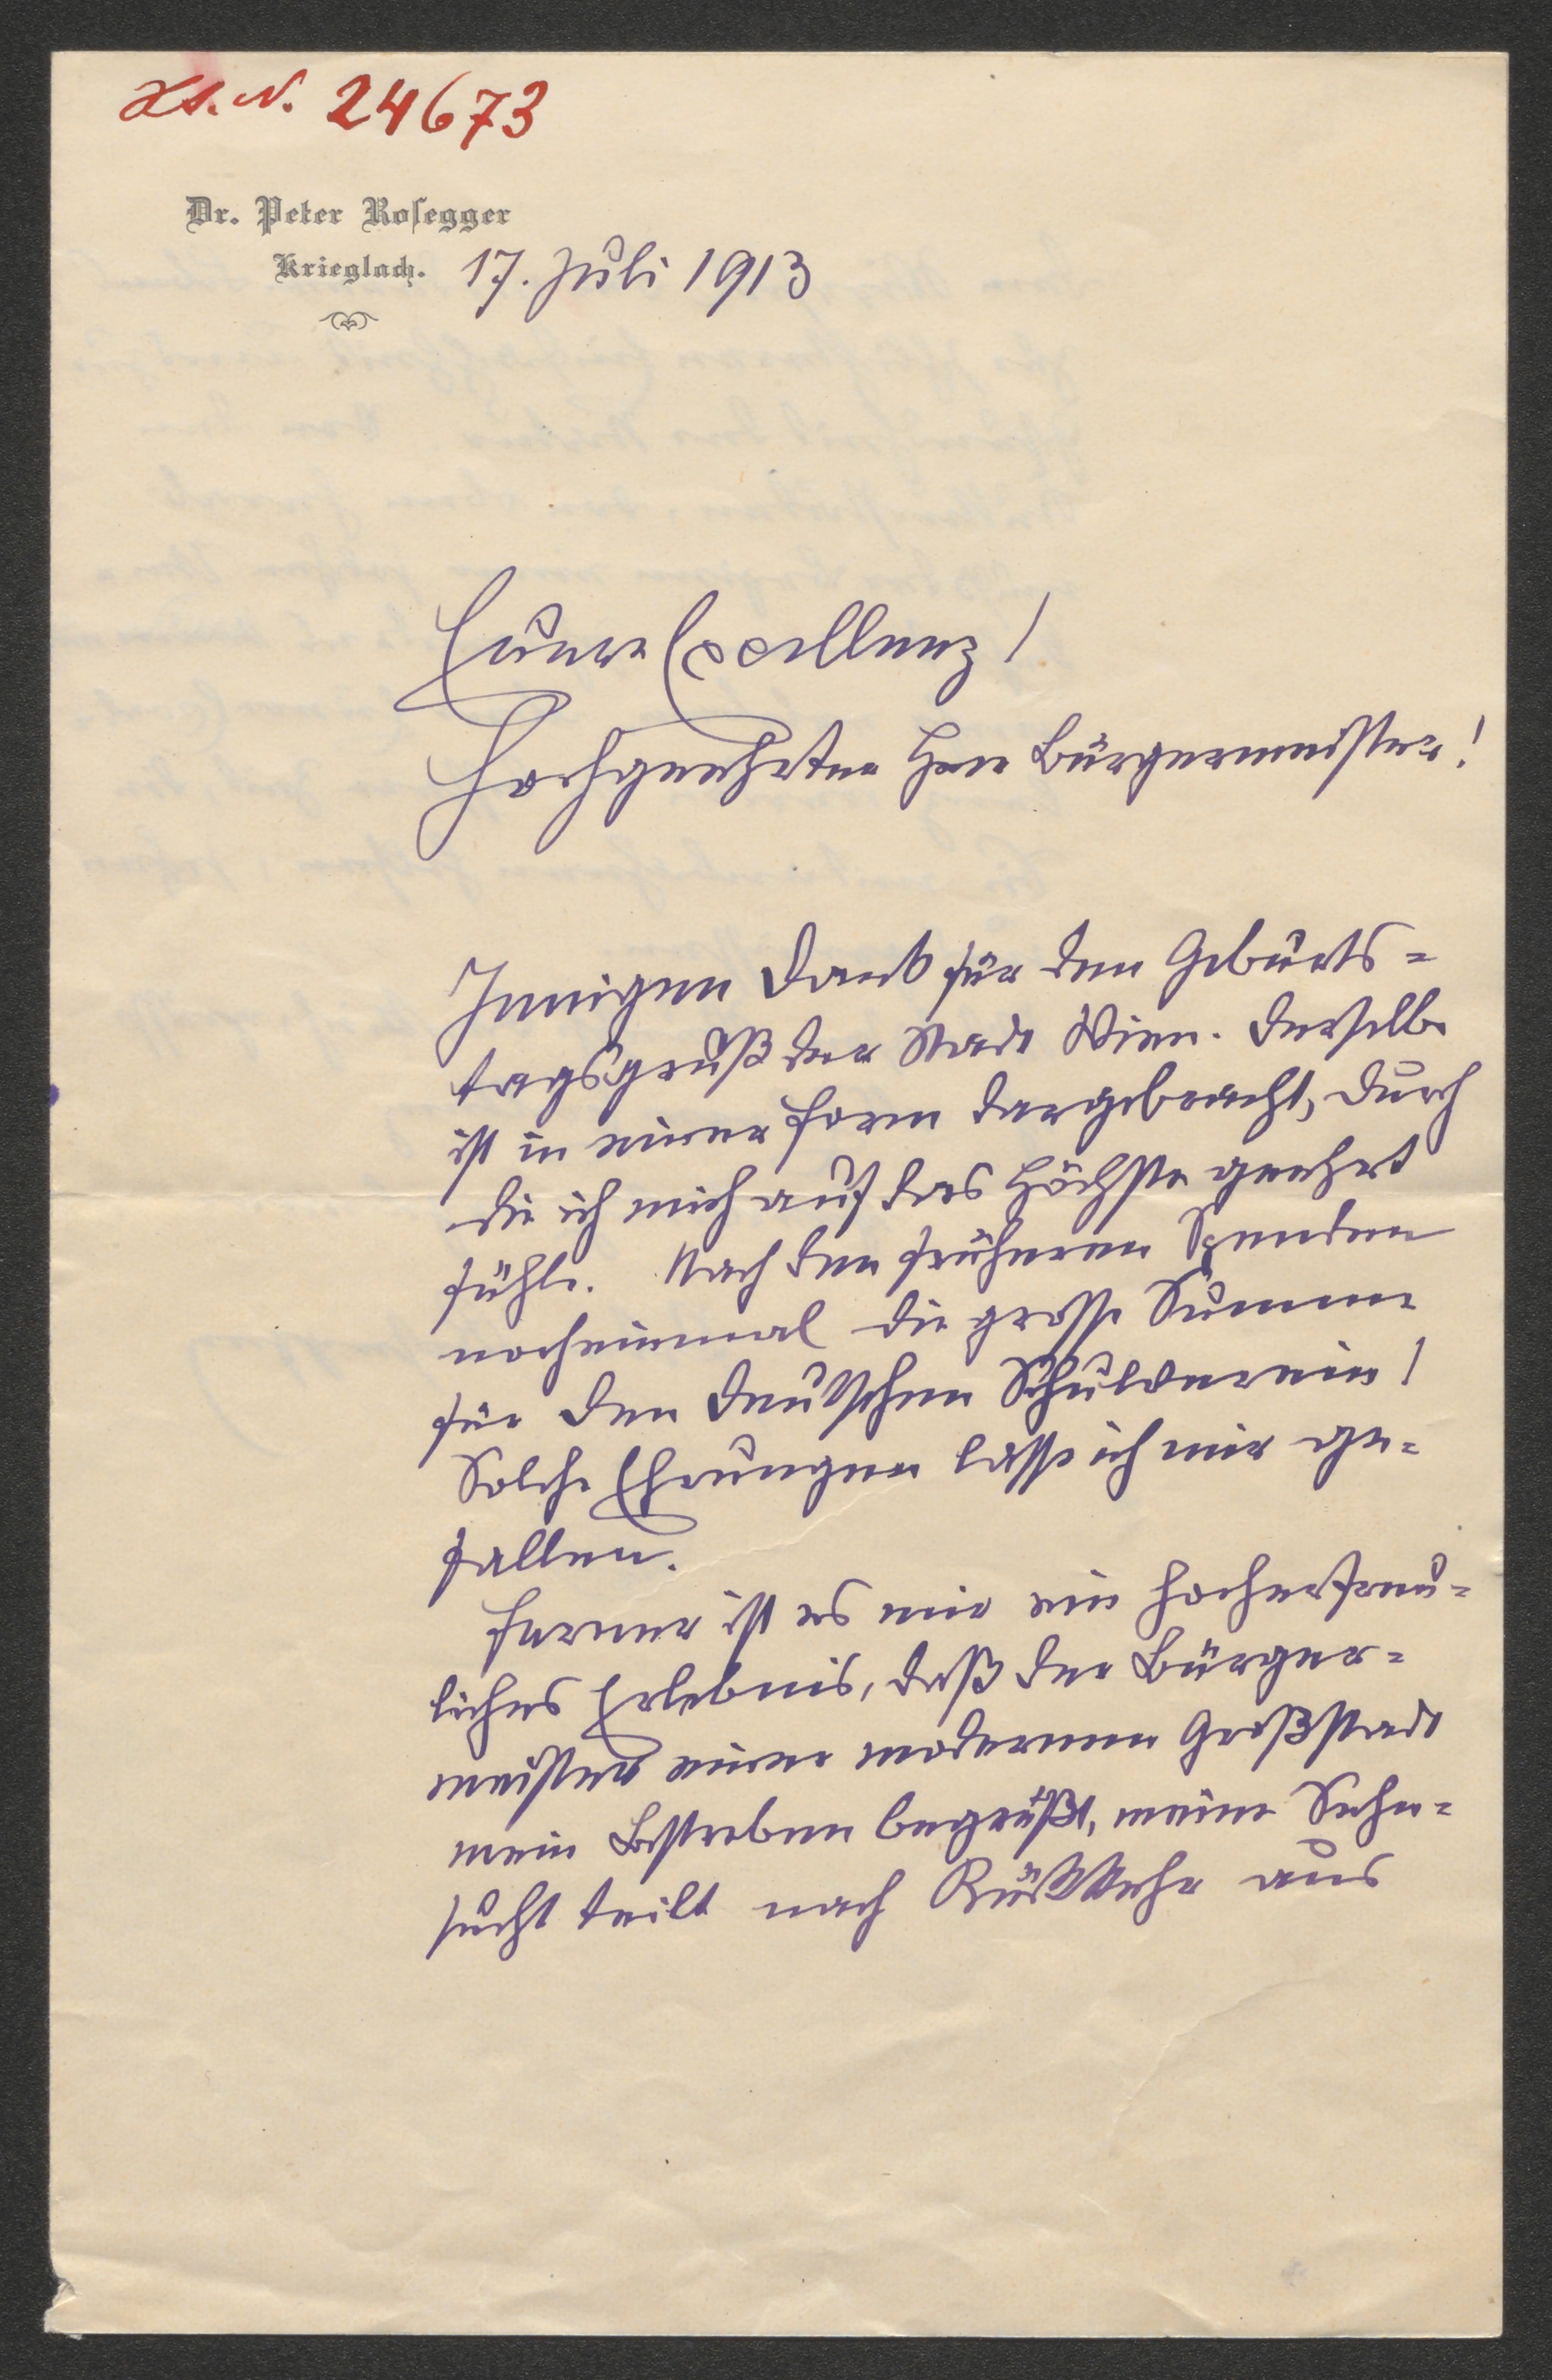 H.I.N. 24673
Dr. Peter Rosegger
Krieglach. 17. Juli 1913
Euere Excellenz!
Hochgeehrter Herr Bürgermeister!
Innigen Dank für den Geburts=
tagsgruß der Stadt Wien. Derselbe
ist in einer Form dargebracht, durch
die ich mich auf das Höchste geehrt
fühle. Nach den früheren Spenden
nocheinmal die grosse Summe
für den Deutschen Schulverein!
Solche Ehrungen lasse ich mir ge=
fallen.
Ferner ist es mir ein hocherfreu=
liches Erlebnis, daß der Bürger=
meister einer modernen Großstadt
mein Bestreben begrüßt, meine Sehn=
sucht teilt nach Rückkehr aus